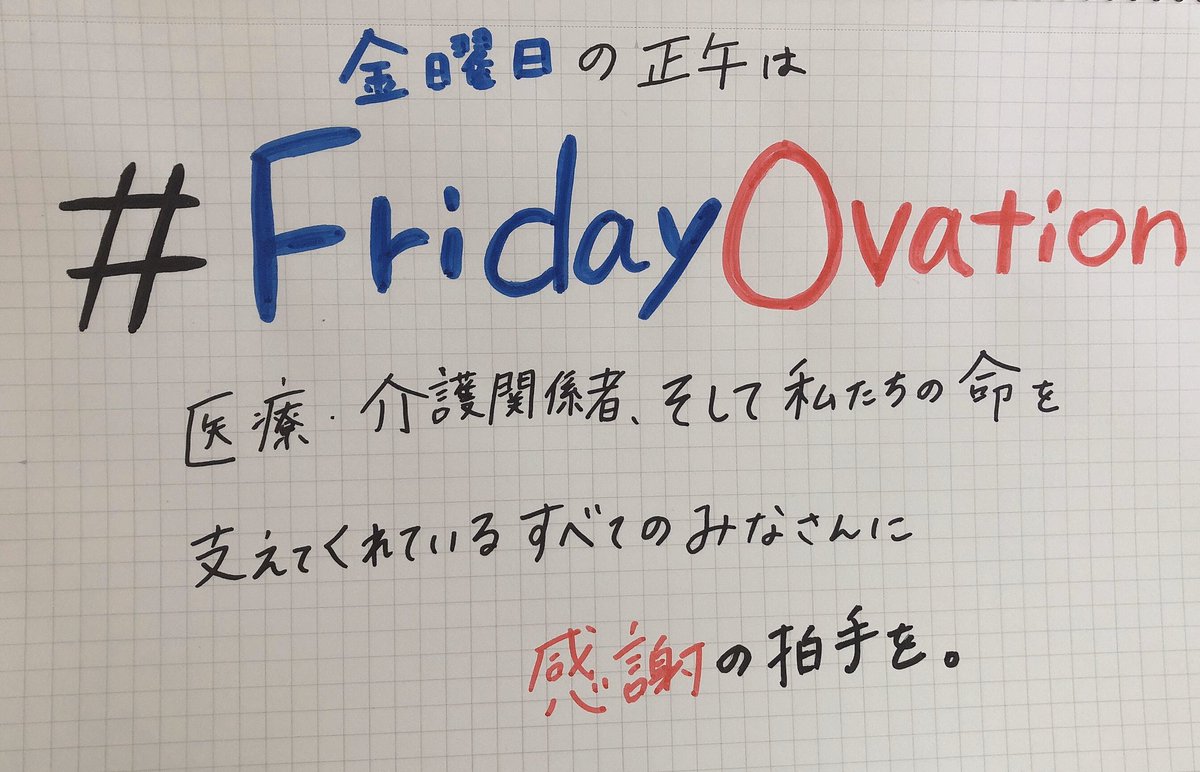 金曜日の正午は
#FridayOvation
医療・介護関係者、そして私たちの命を
支えてくれているすべてのみなさんに
感謝の拍手を。